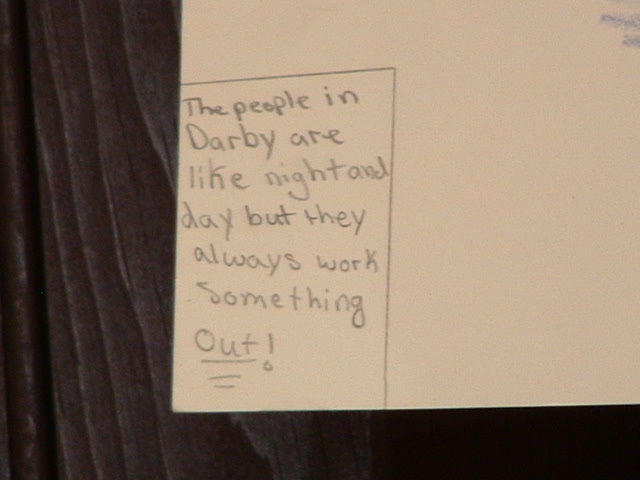 The people in
Darby are
like night and
day but they
always work
Something
Out!